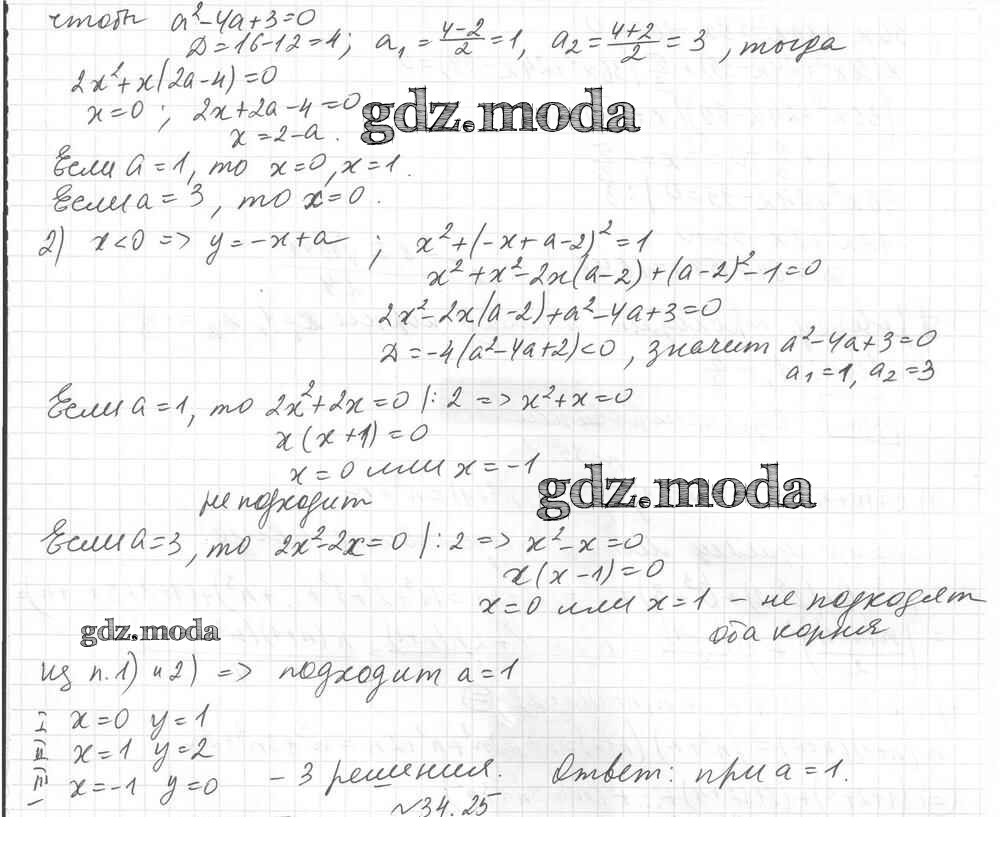 чтобы a²-4a+3=0
Д=16-12=4; a₁=(4-2)/2=1, a₂=(4+2)/2=3, тогда
2x²+x(2a-4)=0
x=0; 2x+2a-4=0
gdz.moda
x=2-a.
Если a=1, то x=0, x=1.
Если a=3, то x=0.
2) x<0 => y=-x+a; x²+(-x+a-2)²=1
x²+x²-2x(a-2)+(a-2)²-1=0
2x²-2x(a-2)+a²-4a+3=0
Д=-4(a²-4a+2)<0, значит a²-4a+3=0
a₁=1, a₂=3
Если a=1, то 2x²+2x=0 |:2 => x²+x=0
x(x+1)=0
x=0 или x=-1
gdz.moda
не подходит
Если a=3, то 2x²-2x=0 |:2 => x²-x=0
x(x-1)=0
x=0 или x=1 - не подходят
gdz.moda
оба корня
из п.1) и 2) => подходит a=1
I x=0 y=1
II x=1 y=2
III x=-1 y=0 - 3 решения. Ответ: при a=1.
№34.25